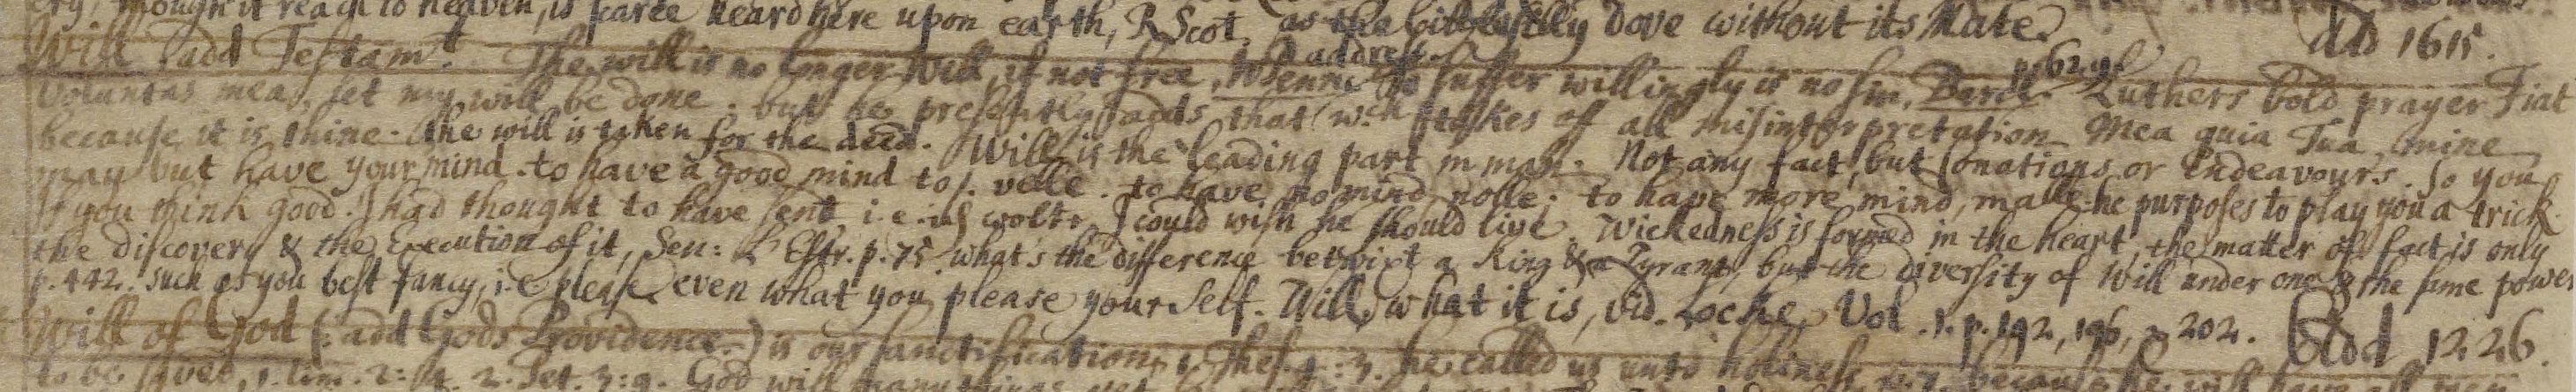 cry, though it reach to heaven, is scarce heard here upon earth, R Scot. as the silly Dove without its Mate.
add 1615.
addrest. p. 62. 98
Will. add Testamt. The will is no longer Will, if not free. to suffer willingly is no sin, Barcl. Luthers bold prayer Fiat
Voluntas mea, let my will be done. but he presently adds that (wch strikes off all misinterpretation Mea quia Tua, mine
because it is thine. the will is taken for the deed. Will is the leading part in man. Not any fact, but Conations or Endeavours. So you
may but have your mind. to have a good mind to s. velle. to have no mind nolle. to have more mind, malle. he purposes to play you a trick.
If you think good. I had thought to have sent i.e. ich wolte. I could wish he should live. Wickedness is formed in the heart, the matter of fact is only
the discovery & the Execution of it, Sen: L'Estr. p. 75. what's the difference betwixt a King & a Tyrant, but the diversity of Will under one & the same power
p. 442. such as you best fancy, i.e. please. even what you please your self. Will, what it is, vid. Locke, Vol. 1. p. 192, 196, 202. Add 1226.
Will of God (: add Gods Providence.) is our sanctification, 1. Thes. 4: 3. he called us unto holiness
to be saved, 1. Tim. 2: 4. 2. Pet. 3: 9. God will many things